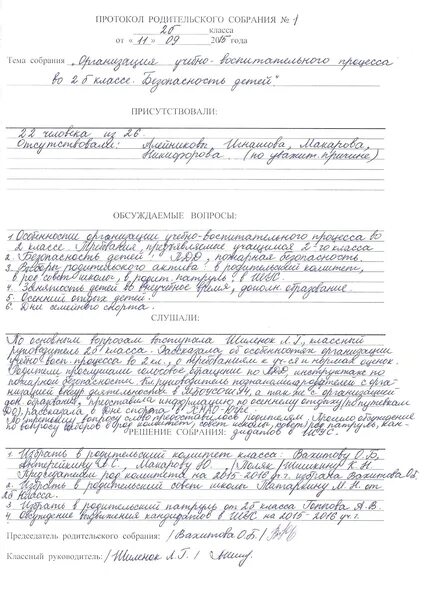 ПРОТОКОЛ РОДИТЕЛЬСКОГО СОБРАНИЯ № 1
2б класса
от « 11 » 09 2015 года
Тема собрания „Организация учебно-воспитательного процесса
во 2 б классе. Безопасность детей".
ПРИСУТСТВОВАЛИ:
22 человека из 26.
Отсутствовали: Алейникова, Игнашова, Макарова,
Никифорова. (по уважит. причине)
ОБСУЖДАЕМЫЕ ВОПРОСЫ:
1. Особенности организации учебно-воспитательного процесса во
2 классе. Требования, предъявляемые учащимся 2-го класса
2. Безопасность детей: ПДД, пожарная безопасность.
3. Выборы родительского актива: в родительский комитет,
в род. совет школы, в родит. патруль, в ШУС.
4. Занятость детей во внеучебное время, дополн. образование.
5. Осенний отдых детей.
6. Дни семейного спорта.
СЛУШАЛИ:
По основным вопросам выступала Шиленок Л.Г., классный
руководитель 2б класса. Рассказала об особенностях организации
учебно-восп. процесса во 2 кл., о требованиях к уч-ся и нормах оценок.
Родители прослушали голосовое обращение по ПДД, инструктаж по
пожарной безопасности. Кл. руководитель познакомила родителей с орга-
низацией внеур. деятельности и а также с организацией
доп. образования, предоставила информацию по осеннему отдыху (о путёвках
рассказала о Дне спорта в ХМАО-Югре.
По третьему вопросу слово предоставлялось родителям. Прошло обсуждение
по вопросу выборов в род. комитет, совет школы, в род. патруль, кан-
РЕШЕНИЕ СОБРАНИЯ: дидатов в ШУС.
1. Избрать в родительский комитет класса: Вахитову О.Б.,
Макарову Ю. Шишкину К.Н.
Председателем род. комитета на 2015-2016 уч. г. избрана Вахитова О.Б.
2. Избрать в родительский совет школы Татаркину М.Н. от
2б класса.
3. Избрать в родительский патруль от 2б класса А.В.
4. Обсуждение выдвижения кандидатов в ШУС на 2015-2016 уч. г.
Председатель родительского собрания: / Вахитова О.Б. /
Классный руководитель: / Шиленок Л.Г. /